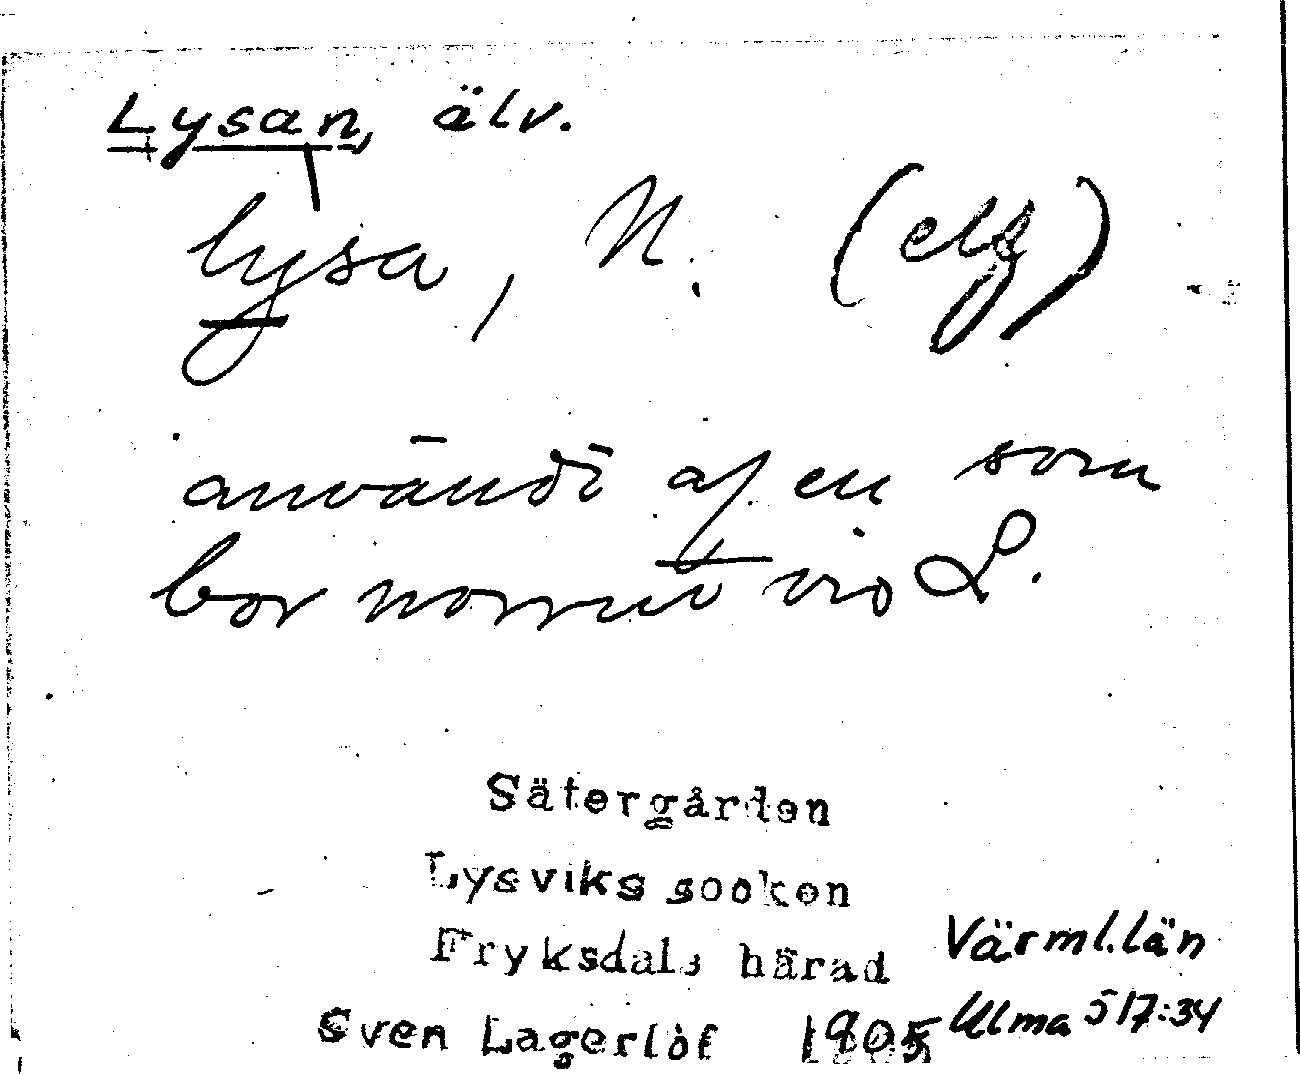 Lysan, älv.
lysa, N. (elf)
användt af en som
bor norrut vid L.
Sätergården
Lysviks socken
Fryksdals härad Värml. län
Sven Lagerlöf 1905 Ulma 517:34